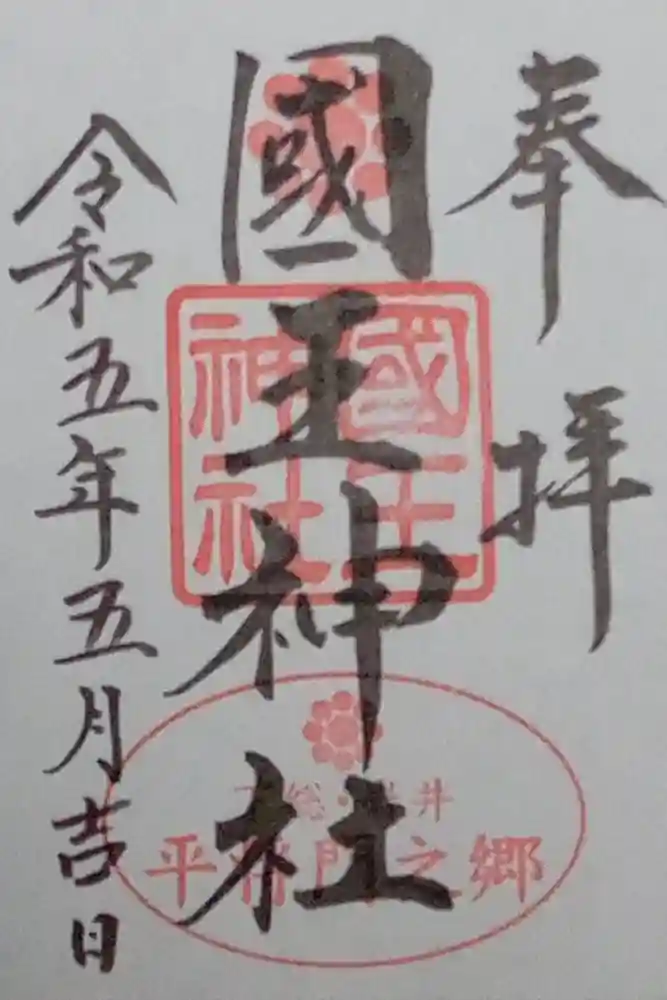 奉拝
國王神社
國王神社
令和五年五月吉日
下総・岩井
平将門之郷